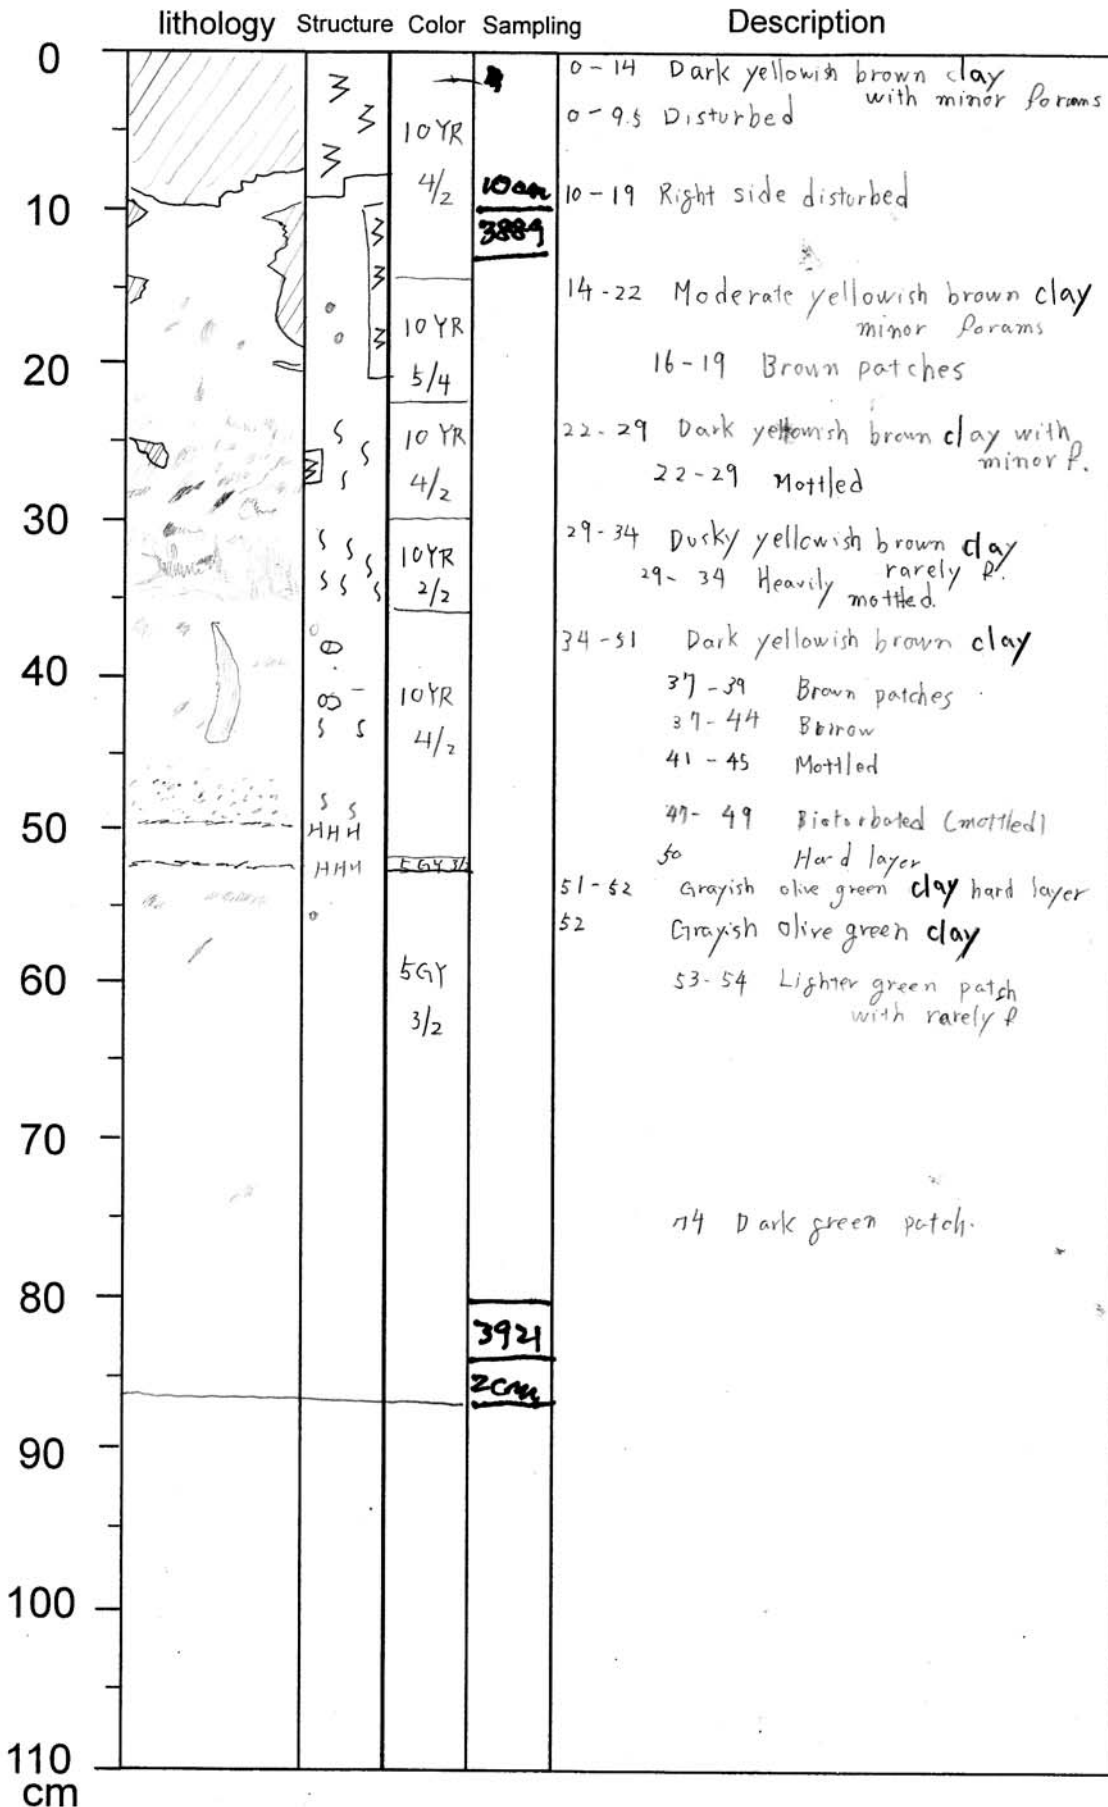 lithology Structure Color Sampling Description
0
10
20
30
40
50
60
70
80
90
100
110
cm
10YR
4/2
10YR
5/4
10YR
4/2
10YR
2/2
10YR
4/2
5GY 3/2
5GY
3/2
HHH
HHH
10cm
3889
3921
2cm
0-14 Dark yellowish brown clay
with minor forams
0-9.5 Disturbed
10-19 Right side disturbed
14-22 Moderate yellowish brown clay
minor forams
16-19 Brown patches
22-29 Dark yellowish brown clay with
minor f.
22-29 Mottled
29-34 Dusky yellowish brown clay
rarely f.
29-34 Heavily
mottled.
34-51 Dark yellowish brown clay
37-39 Brown patches
37-44 Burrow
41-45 Mottled
47-49 Bioturbated (mottled)
50 Hard layer
51-52 Grayish olive green clay hard layer
52 Grayish olive green clay
53-54 Lighter green patch
with rarely f
74 Dark green patch.